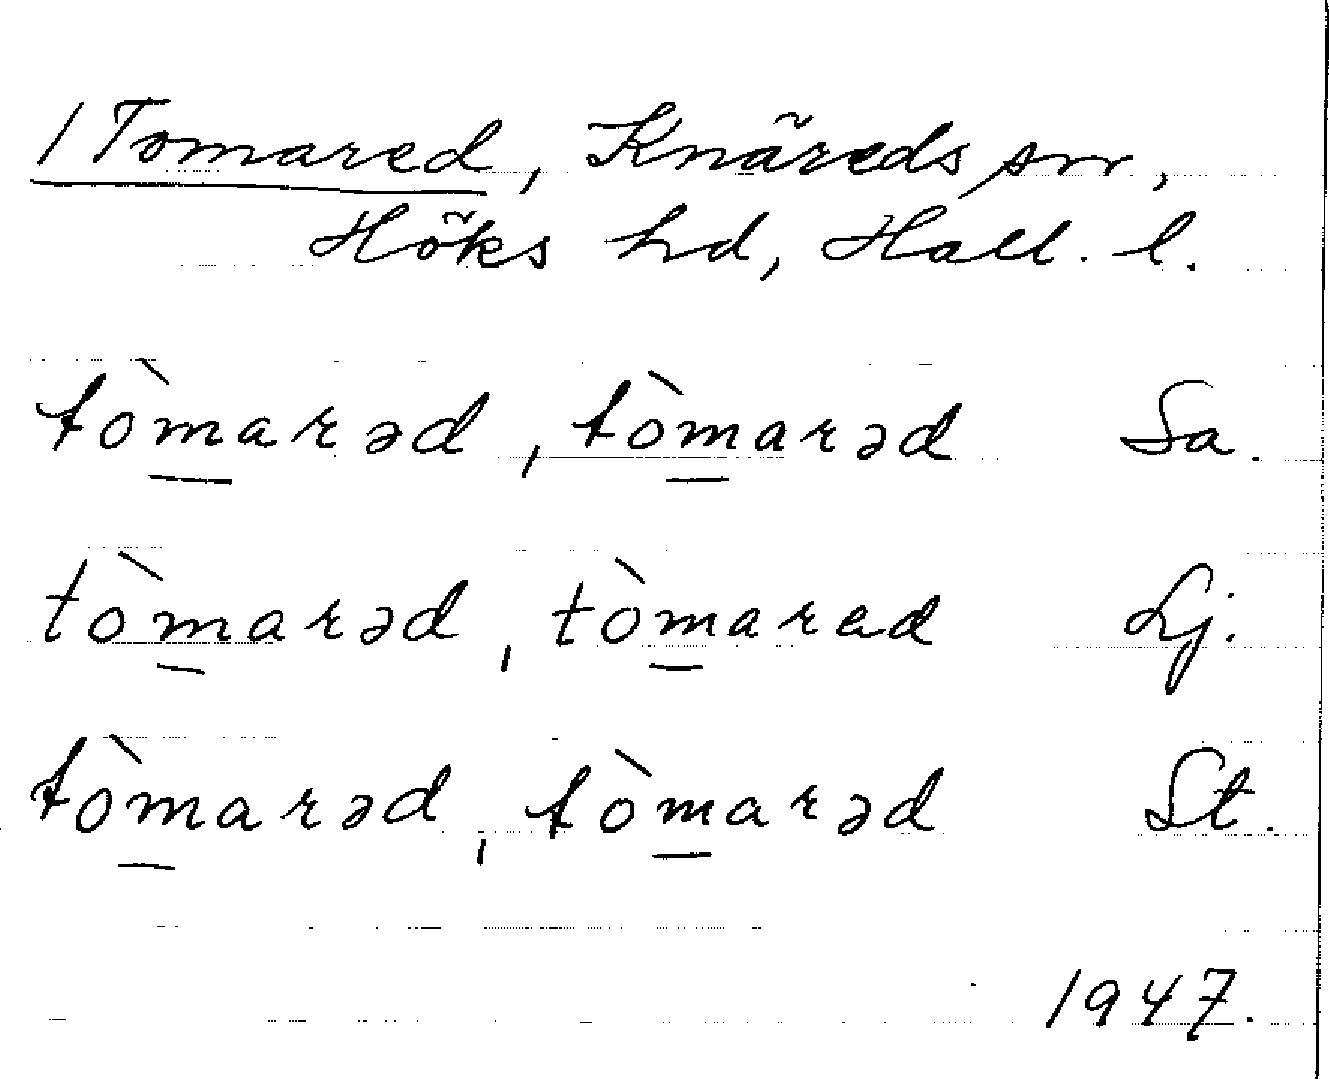 1 Tomared, Knäreds sn,
Höks hd, Hall. l.
tòmarəd, tòmarəd Sa.
tòmarəd, tòmarad Lj.
tòmarəd, tòmarəd St.
1947.